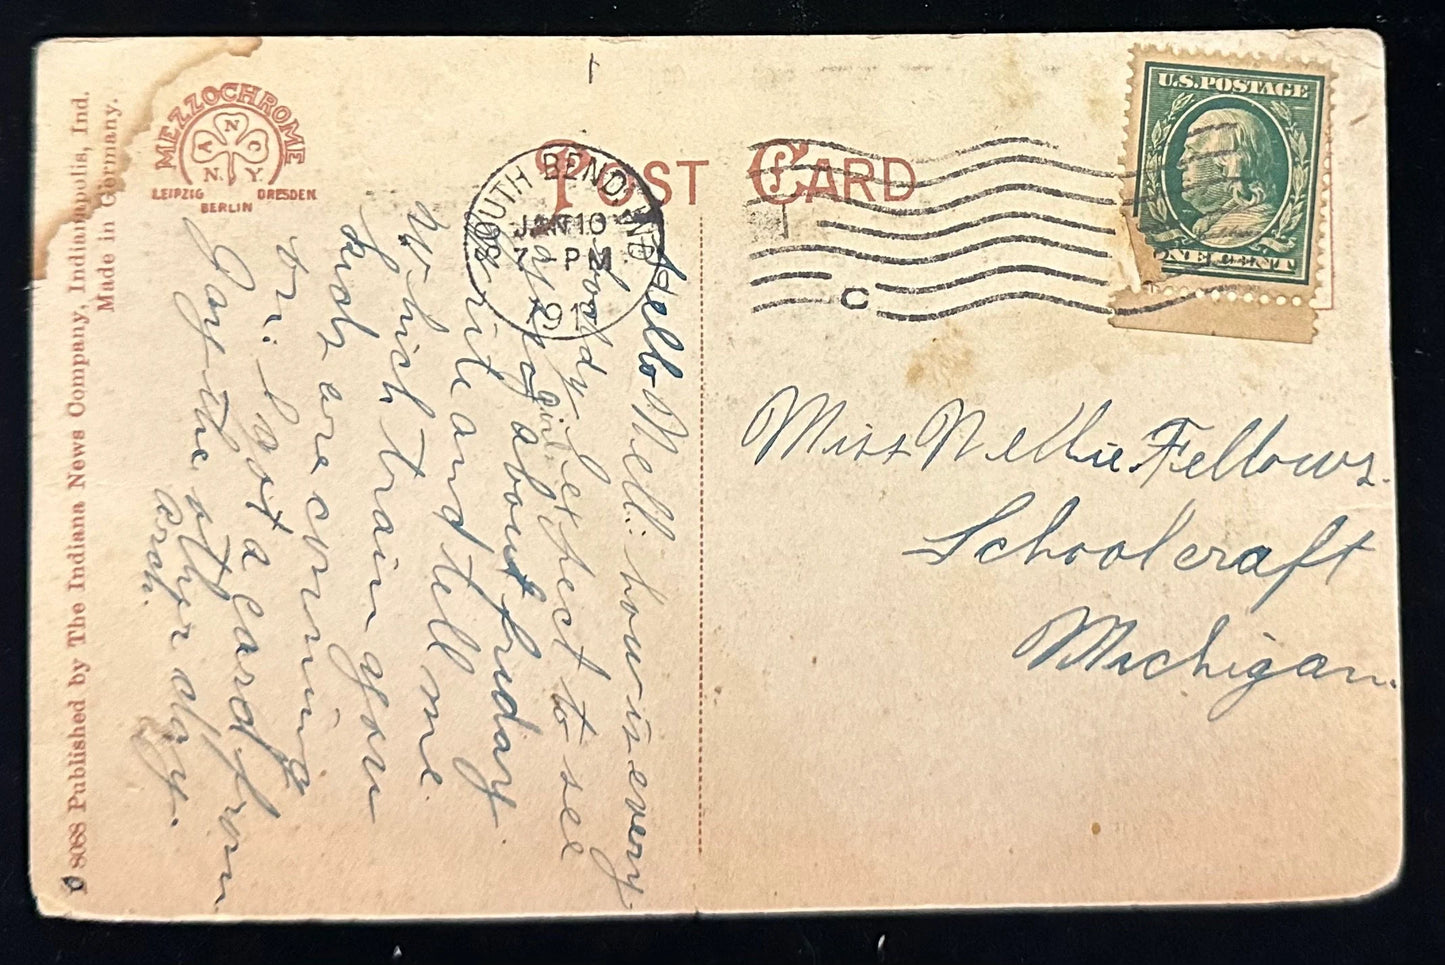 POST CARD
MEZZOCHROME
A N C
N.Y.
LEIPZIG DRESDEN
BERLIN
D 8088 Published by The Indiana News Company, Indianapolis, Ind.
Made in Germany.
SOUTH BEND IND
JAN 10
7-PM
191
C
U.S. POSTAGE
ONE CENT
Hello Nell: how is every
body. I expect to see
you again about friday.
write and tell me
which train you
kids are comming
on. I got a card from
Gay the other day.
Miss Nellie Fellows.
Schoolcraft
Michigan.